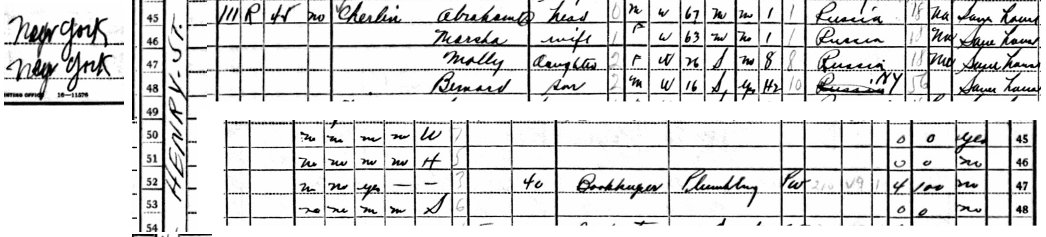 New York
New York
16-11576
HENRY ST.
45 111 R 45 no Cherlin Abraham head 0 M W 67 M no 1 1 Russia 18 Na Same house
46 Marsha wife 1 F W 63 M no 1 1 Russia 18 Na Same house
47 Molly daughter 2 F W 26 S no 8 8 Russia 18 Na Same house
48 Bernard son 2 M W 16 S yes H2 10 Russia NY 56 Same house
49
50 no no no no U 7 0 0 yes 45
51 no no no no H 5 0 0 no 46
52 no no yes — — 3 40 Bookkeeper Plumbing PW 210 V9 1 4 100 no 47
53 no no no no S 6 0 0 no 48
54